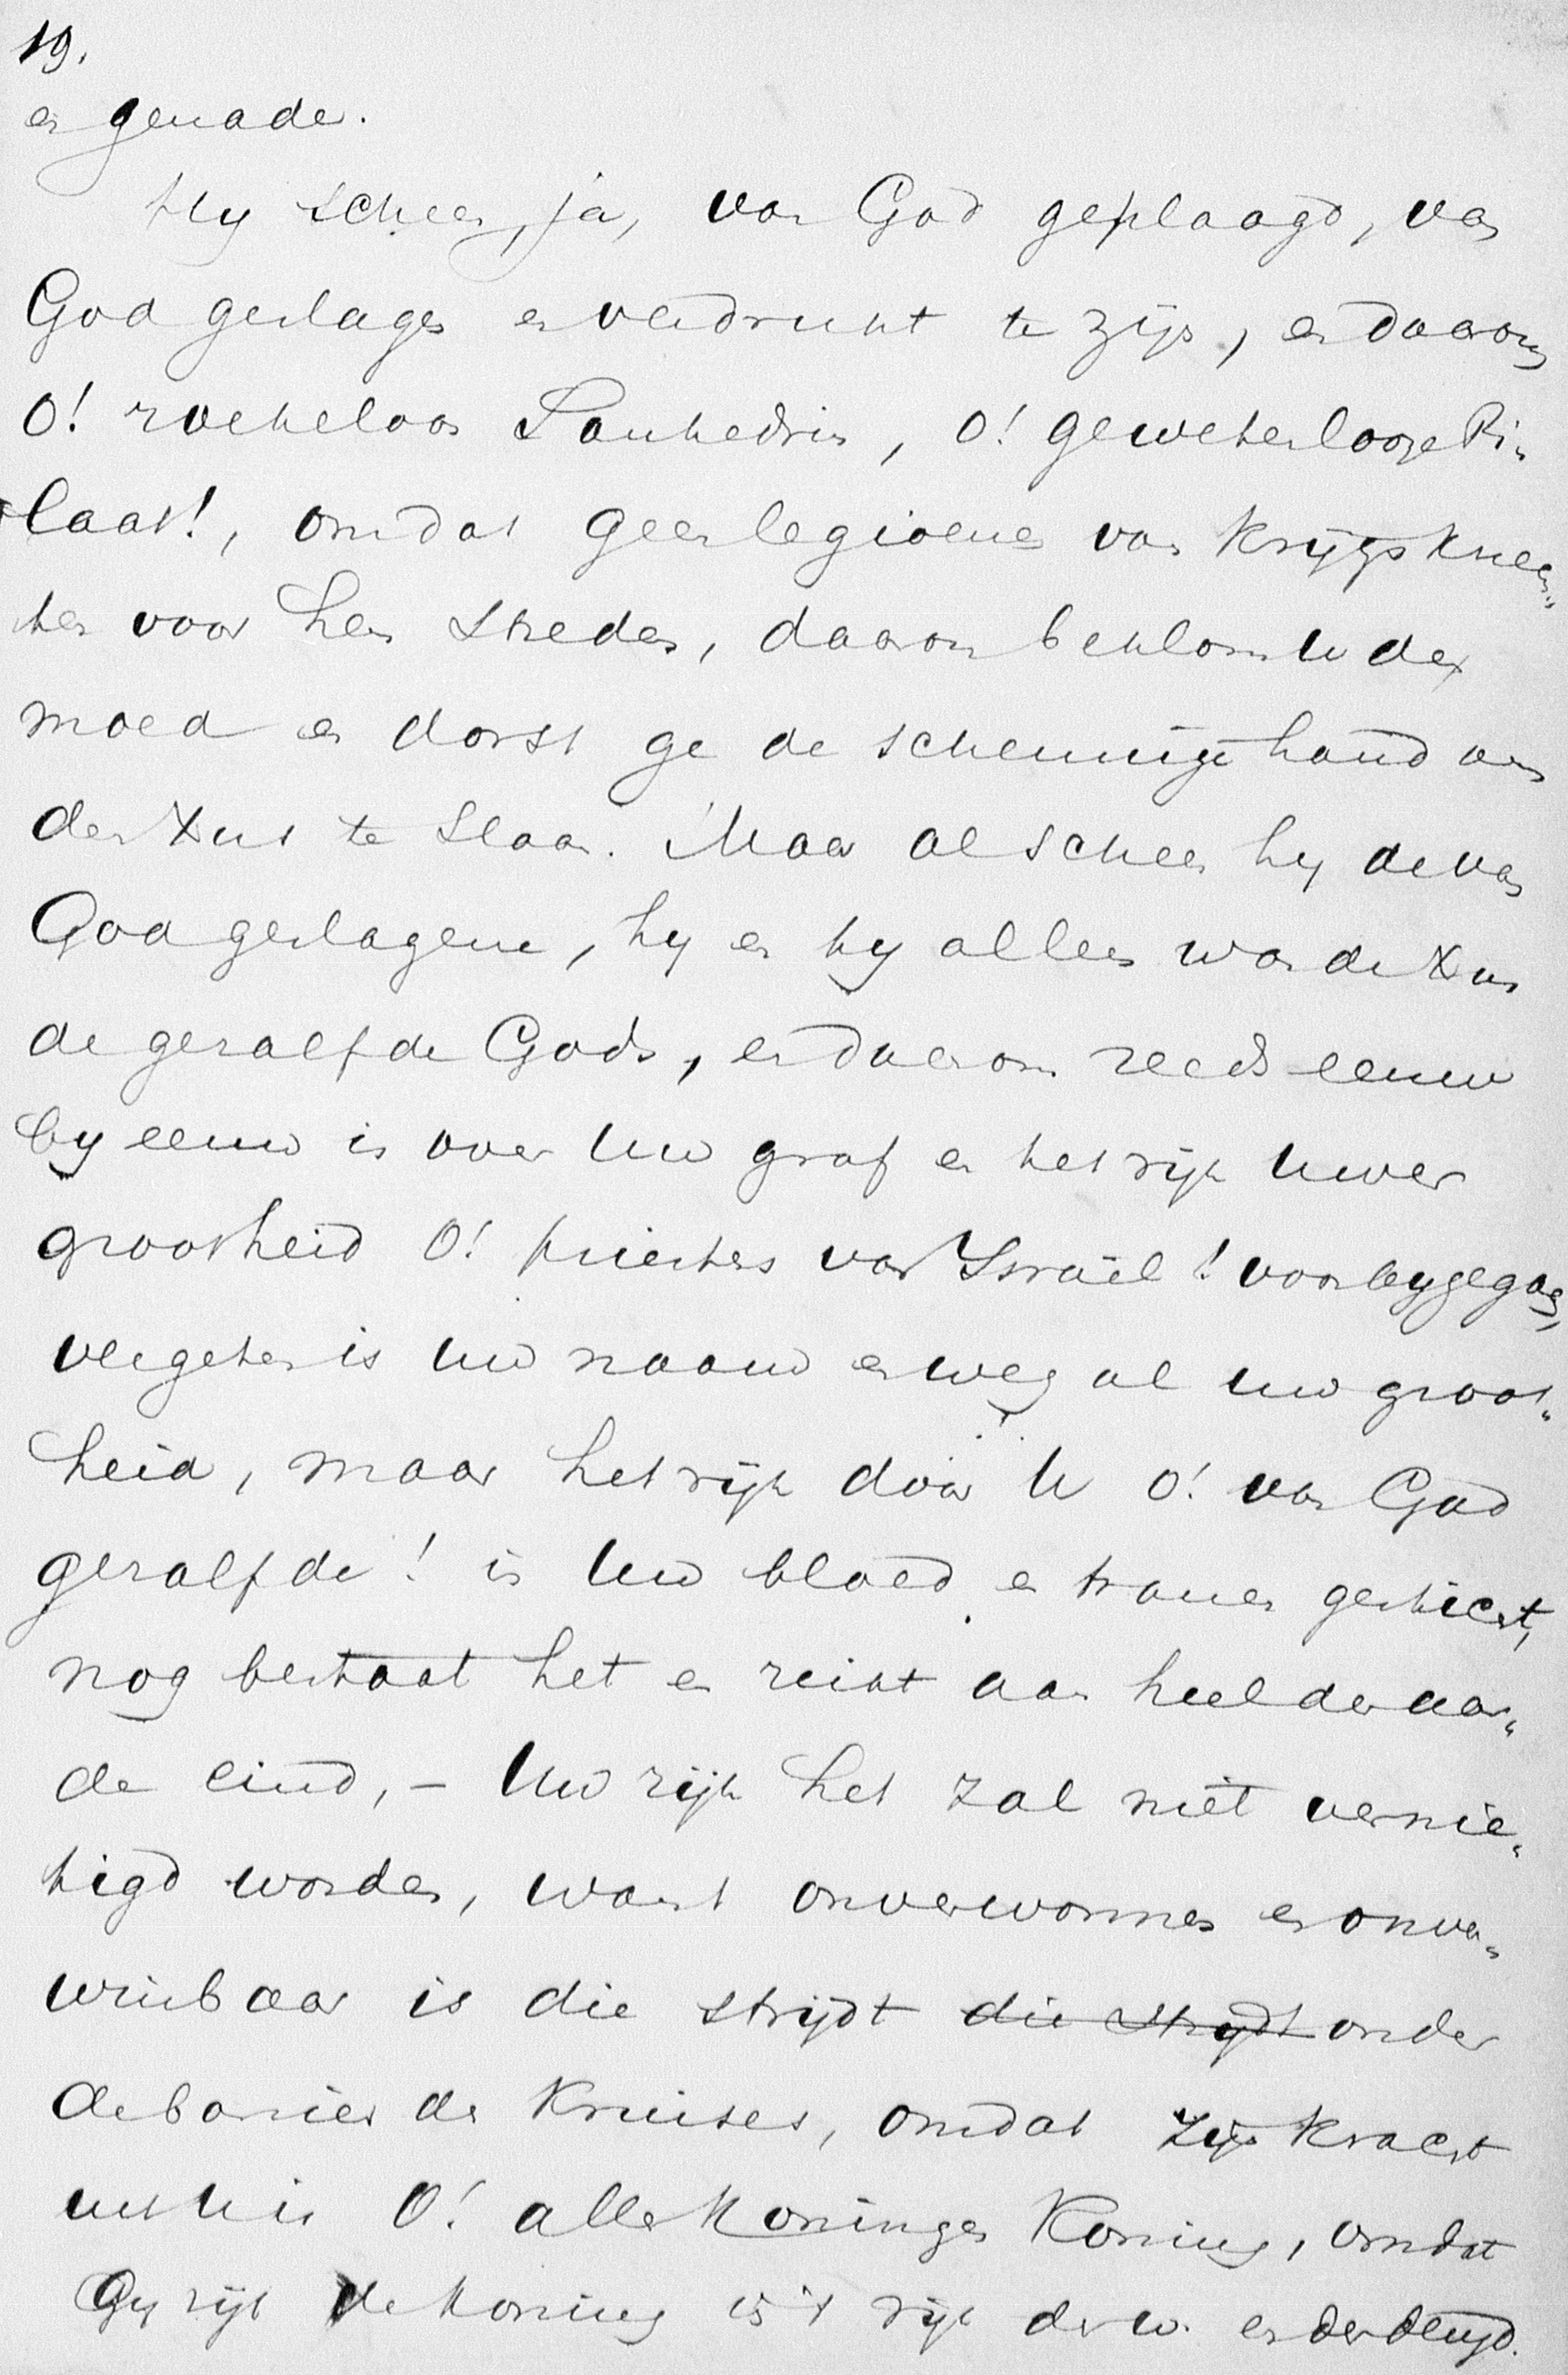 19.
en genade.
Hy scheen, ja, van God geplaagd, van
God geslagen en verdrukt te zijn, en daarom
O! roekeloos Sanhedrin, O! gewetenlooze Pi-
laat!, omdat geen legioenen van Krijgsknech-
ten voor hem streden, daarom beklom U den
moed en dorst ge de schennige hand aan
den Xus te slaan. Maar al scheen hy de van
God geslagene, hy en hy alleen was de Xus
de gezalfde Gods, en daarom reeds eeuw
by eeuw is over Uw graf en het rijk Uwer
grootheid O! priesters van Israël! voorbygegaan,
vergeten is Uw naam en weg al Uw groot-
heid, maar het rijk door U O! van God
gezalfde! in Uw bloed en tranen gesticht,
nog bestaat het en reikt aan heel der aar-
de eind, - Uw rijk het zal niet vernie-
tigd worden, want onverwonnen en onver-
winbaar is die strijdt die strijdt onder
de banier des Kruises, omdat zijn Kracht
uit U is O! aller Koningen Koning, omdat
Gy zijt de Koning is 't rijk der w. en der deugd.